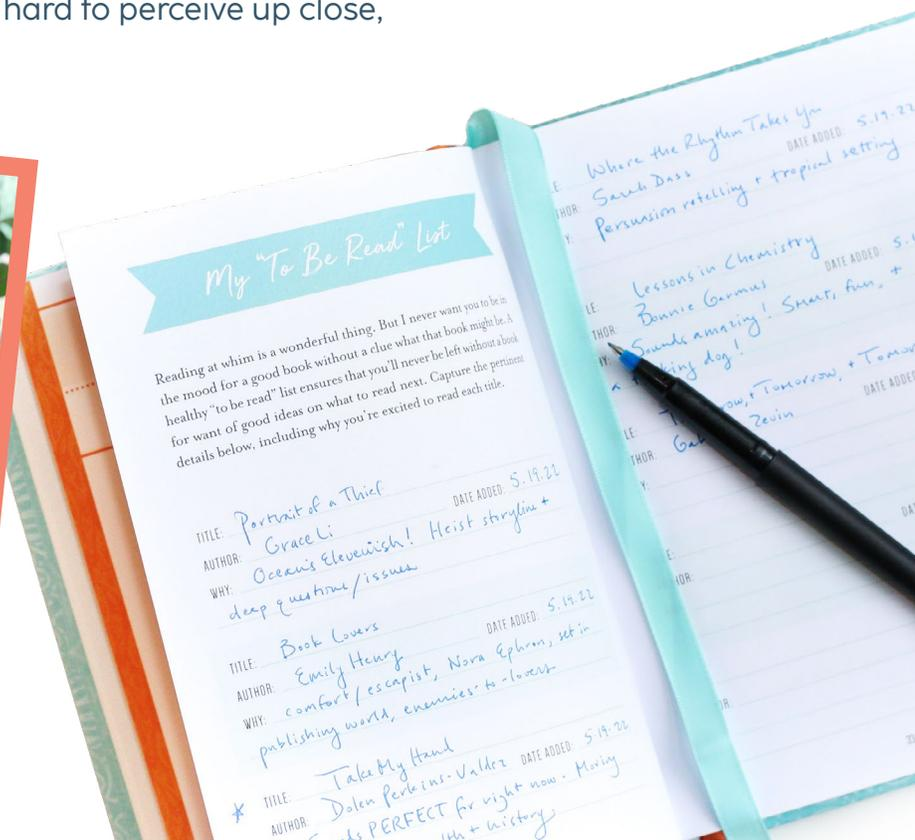 hard to perceive up close,
My "To Be Read" List
Reading at whim is a wonderful thing. But I never want you to be in
the mood for a good book without a clue what that book might be. A
healthy "to be read" list ensures that you'll never be left without a book
for want of good ideas on what to read next. Capture the pertinent
details below, including why you're excited to read each title.
TITLE: Portrait of a Thief
AUTHOR: Grace Li DATE ADDED: 5.19.22
WHY: Ocean's Elevenish! Heist storyline +
deep questions/issues
TITLE: Book Lovers
AUTHOR: Emily Henry DATE ADDED: 5.19.22
WHY: comfort/escapist, Nora Ephron, set in
publishing world, enemies-to-lovers
TITLE: Take My Hand
AUTHOR: Dolen Perkins-Valdez DATE ADDED: 5.19.22
PERFECT for right now. Moving
+ history
Where the Rhythm Takes You
Sarah Dass DATE ADDED: 5.19.22
Persuasion retelling + tropical setting
Lessons in Chemistry
Bonnie Garmus DATE ADDED:
Sounds amazing! Smart, fun, +
a dog!
Tomorrow, +
Zevin DATE ADDED